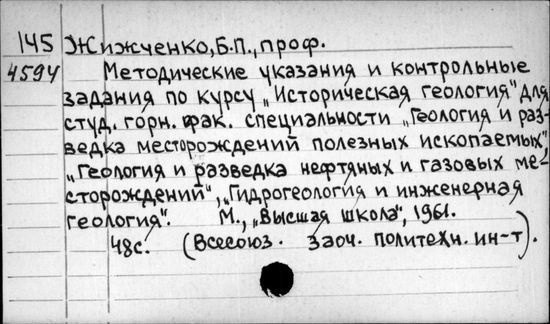 145 Жижченко, Б.П., проф.
4594 Методические указания и контрольные
задания по курсу „Историческая геология" для
студ. горн. фак. специальности „Геология и раз-
ведка месторождений полезных ископаемых",
„Геология и разведка нефтяных и газовых ме-
сторождений", „Гидрогеология и инженерная
геология". М., „Высшая школа", 1961.
48с. (Всесоюз. заоч. политехн. ин-т).